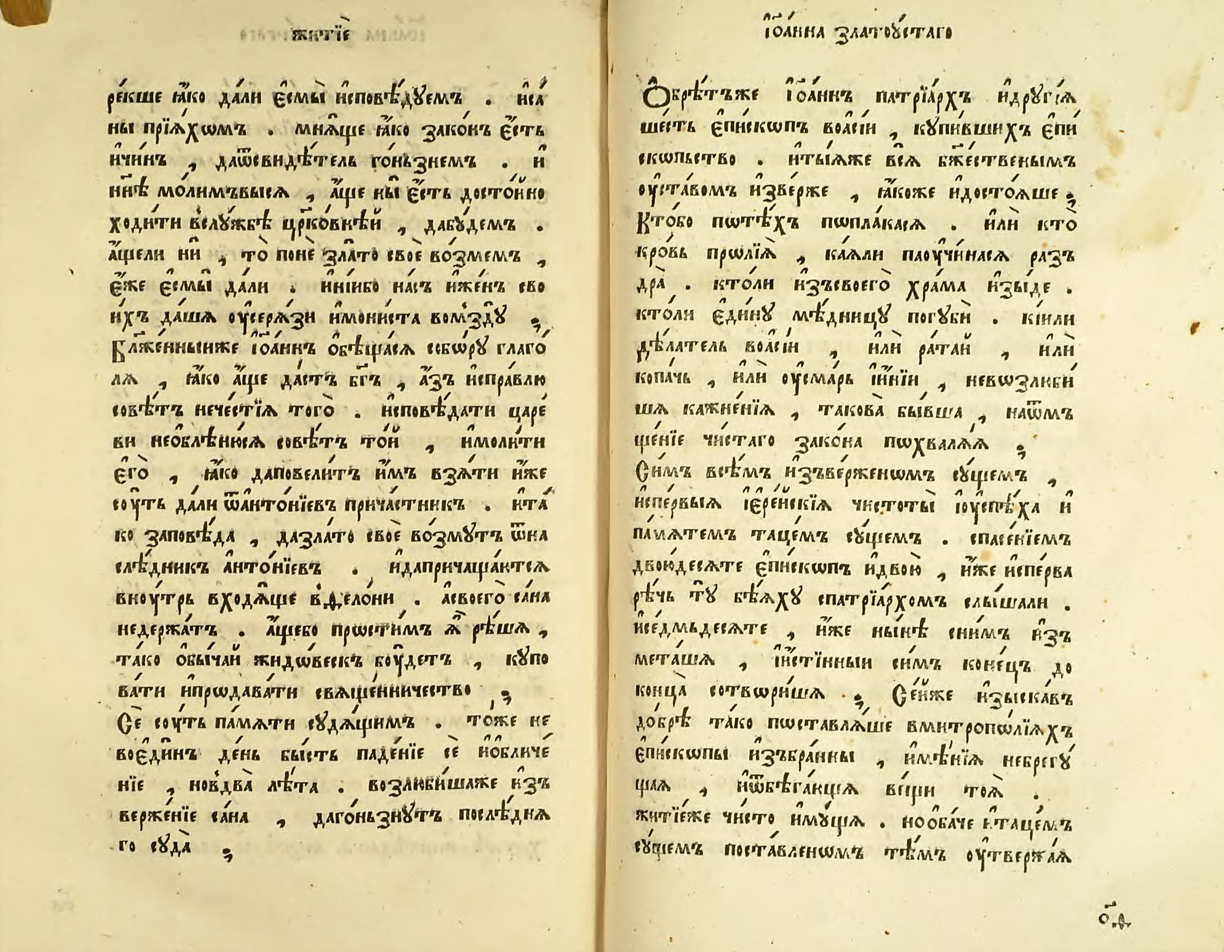 житїѐ
ре́кше ꙗ҆́ко дали є҆смы̀ и҆сповѣ́дуемъ . и҆са́
ны прїѧ́хѡмъ . мнѧ́ще ꙗ҆́ко зако́нъ є҆́сть
и҆чи́нъ , даѿсвидѣ́тель го́ньзнемъ . и҆
нн҃ѣ мо́лимъвысѧ , а҆́ще ны̀ є҆́сть досто́йно
ходи́ти вслꙋ́жбѣ црк҃о́внѣй , дабꙋ́демъ .
а҆́щели нѝ , то̀ понѐ зла́то своѐ во́змемъ ,
є҆́же є҆смы̀ дали . и҆ні́ибо на́съ и҆же́нъ сво
и́хъ да́шѧ оу҆серѧ́зи и҆мони́ста вом́здꙋ ,
Бл҃же́нныиже і҆ѡа́ннъ ѻ҆бѣща́сѧ ссбо́рꙋ глаго́
лѧ , ꙗ҆́ко а҆́ще да́стъ бг҃ъ , а҆́зъ и҆спра́влю
совѣ́тъ нече́стїѧ того̀ . и҆сповѣ́дати царе́
ви необлѣню́сѧ совѣ́тъ то́й , и҆моли́ти
є҆го̀ , ꙗ҆́ко даповели́тъ и҆̀мъ взѧ́ти и҆̀же
соу́ть дали ѿанто́нїевъ прича́стникъ . и҆та́
ко запо́вѣда , дазла́то своѐ во́змꙋтъ ѿна
слѣ́дникъ а҆нто́нїевъ . и҆даприча́щаютсѧ
вноу́трь входѧ́ще вѳелони . а҆своего̀ са́на
недержа́тъ . а҆́щебо прости́мъ ѧ҆̀ рѣ́шѧ ,
та́ко ѻ҆бы́чай жидо́вескъ боу́детъ , кꙋпо
ва́ти и҆прѡдава́ти свѧще́нничество ,
Сѐ соу́ть па́мѧти сꙋдѧ́щимъ . то́же не
воє҆ди́нъ де́нь бы́сть паде́нїе сѐ и҆ѡбличе́
нїе , новдва̀ лѣ́та . возлюби́шаже и҆з̾
верже́нїе са́на , даго́ньзнꙋтъ послѣ́днѧ
го сꙋда̀ ,
і҆ѡа́нна златоꙋ́стаго
Ѻ҆брѣ́тъже і҆ѡа́ннъ патрїа́рхъ и҆дрꙋгі́ѧ
ше́сть є҆пи́скѡпъ воасі́и , кꙋпи́вшихъ є҆пи́
скѡпьство . и҆ты́ѧже всѧ̀ бж҃е́ственымъ
оу҆ста́вомъ и҆зве́рже , ꙗ҆́коже и҆досто́ѧше ,
Кто́бо пѡтѣ́хъ пѡпла́касѧ . и҆лѝ кто̀
кро́вь прѡлїѧ̀ , каѧ́ли паоучи́насѧ раз̾
дра̀ . кто́ли и҆зъсвоего̀ хра́ма и҆зы́де .
кто́ли є҆ди́нꙋ мѣ́дницꙋ погꙋбѝ . кі́или
дѣ́латель воасі́и , и҆лѝ рата́й , и҆лѝ
копа́чь , и҆лѝ оу҆сма́рь и҆ні́и , невозлюби́
шѧ кажне́нїѧ , такова̀ бы́вша , наѿм̾
ще́нїе чи́стаго зако́на пѡхвалѧ́ѧ ,
Си́мъ всѣ́мъ и҆зве́рженѡмъ сꙋ́щемъ ,
и҆спе́рвыѧ і҆ере́йскїѧ чистоты̀ і҆ꙋспѣ́ха и҆
па́мѧтем таце́мъ сꙋ́щемъ . спасе́нїемъ
двою́десѧте є҆пи́скѡпъ и҆двою̀ , и҆̀же и҆спе́рва
рѣ́чь тꙋ̀ бѣ́ѧхꙋ спатрїа́рхомъ слы́шали .
и҆се́дмьдесѧте , и҆̀же ны́нѣ сни́мъ и҆з̾
мета́шѧ , і҆и́стїнныи си́мъ коне́цъ до
конца̀ сотвори́шѧ . Се́йже и҆зыска́въ
до́брѣ та́ко пѡставлѧ́ше вмитропо́лїѧхъ
є҆пи́скѡпы и҆збра́нны , и҆мѣ́нїѧ небрегꙋ́
щаѧ , и҆ѿбѣ́гающѧ ве́щи тоѧ̀ .
житїе́же чи́сто и҆мꙋ́щѧ . но ѻ҆ба́че і҆таце́мъ
сꙋ́щемъ поставле́нѡмъ тѣ́мъ оу҆твержа́ѧ
ѻ҃ѳ